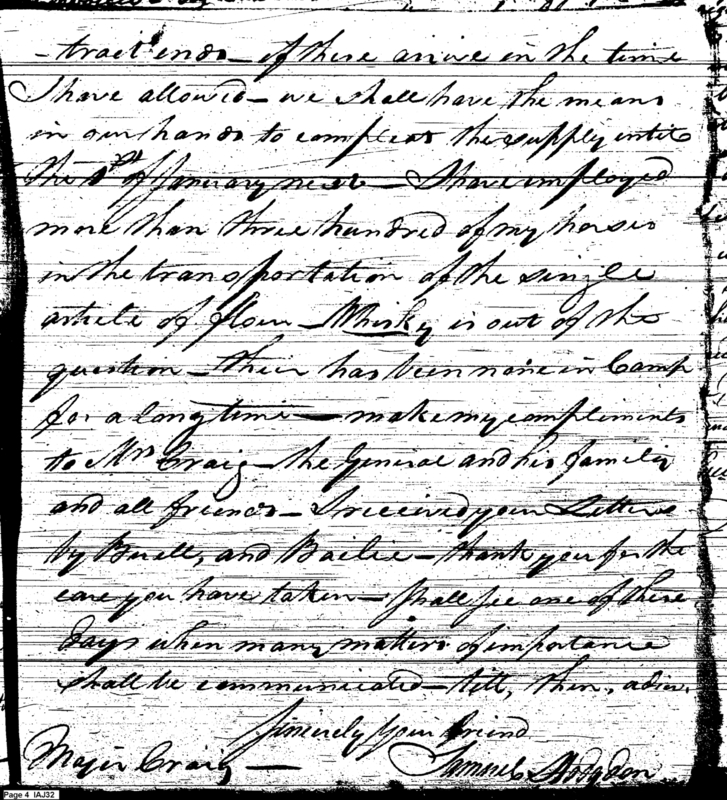 -tract ends - if these arive in the time
I have allowed - we shall have the means
in our hands to compleat the supply until
the 1st of January next - I have employed
more than three hundred of my horses
in the transportation of the single
article of flour - Whisky is out of the
question - their has been none in Camp
for a long time - make my compliments
to Mrs Craig - the General and his family
and all friends - I received your Letters
by Buell, and Bailie - thank you for the
care you have taken - shall see one of these
days when many matters of importance
shall be communicated - till, then, adieu.
Sincerely your friend
Major Craig - Samuel Hodgdon
Page 4 IAJ32